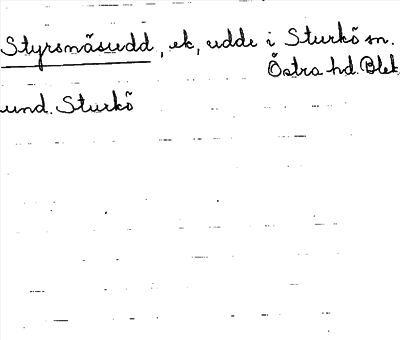 Styrsnäsudd, ek, udde i Sturkö sn.
Östra hd. Blek
und. Sturkö